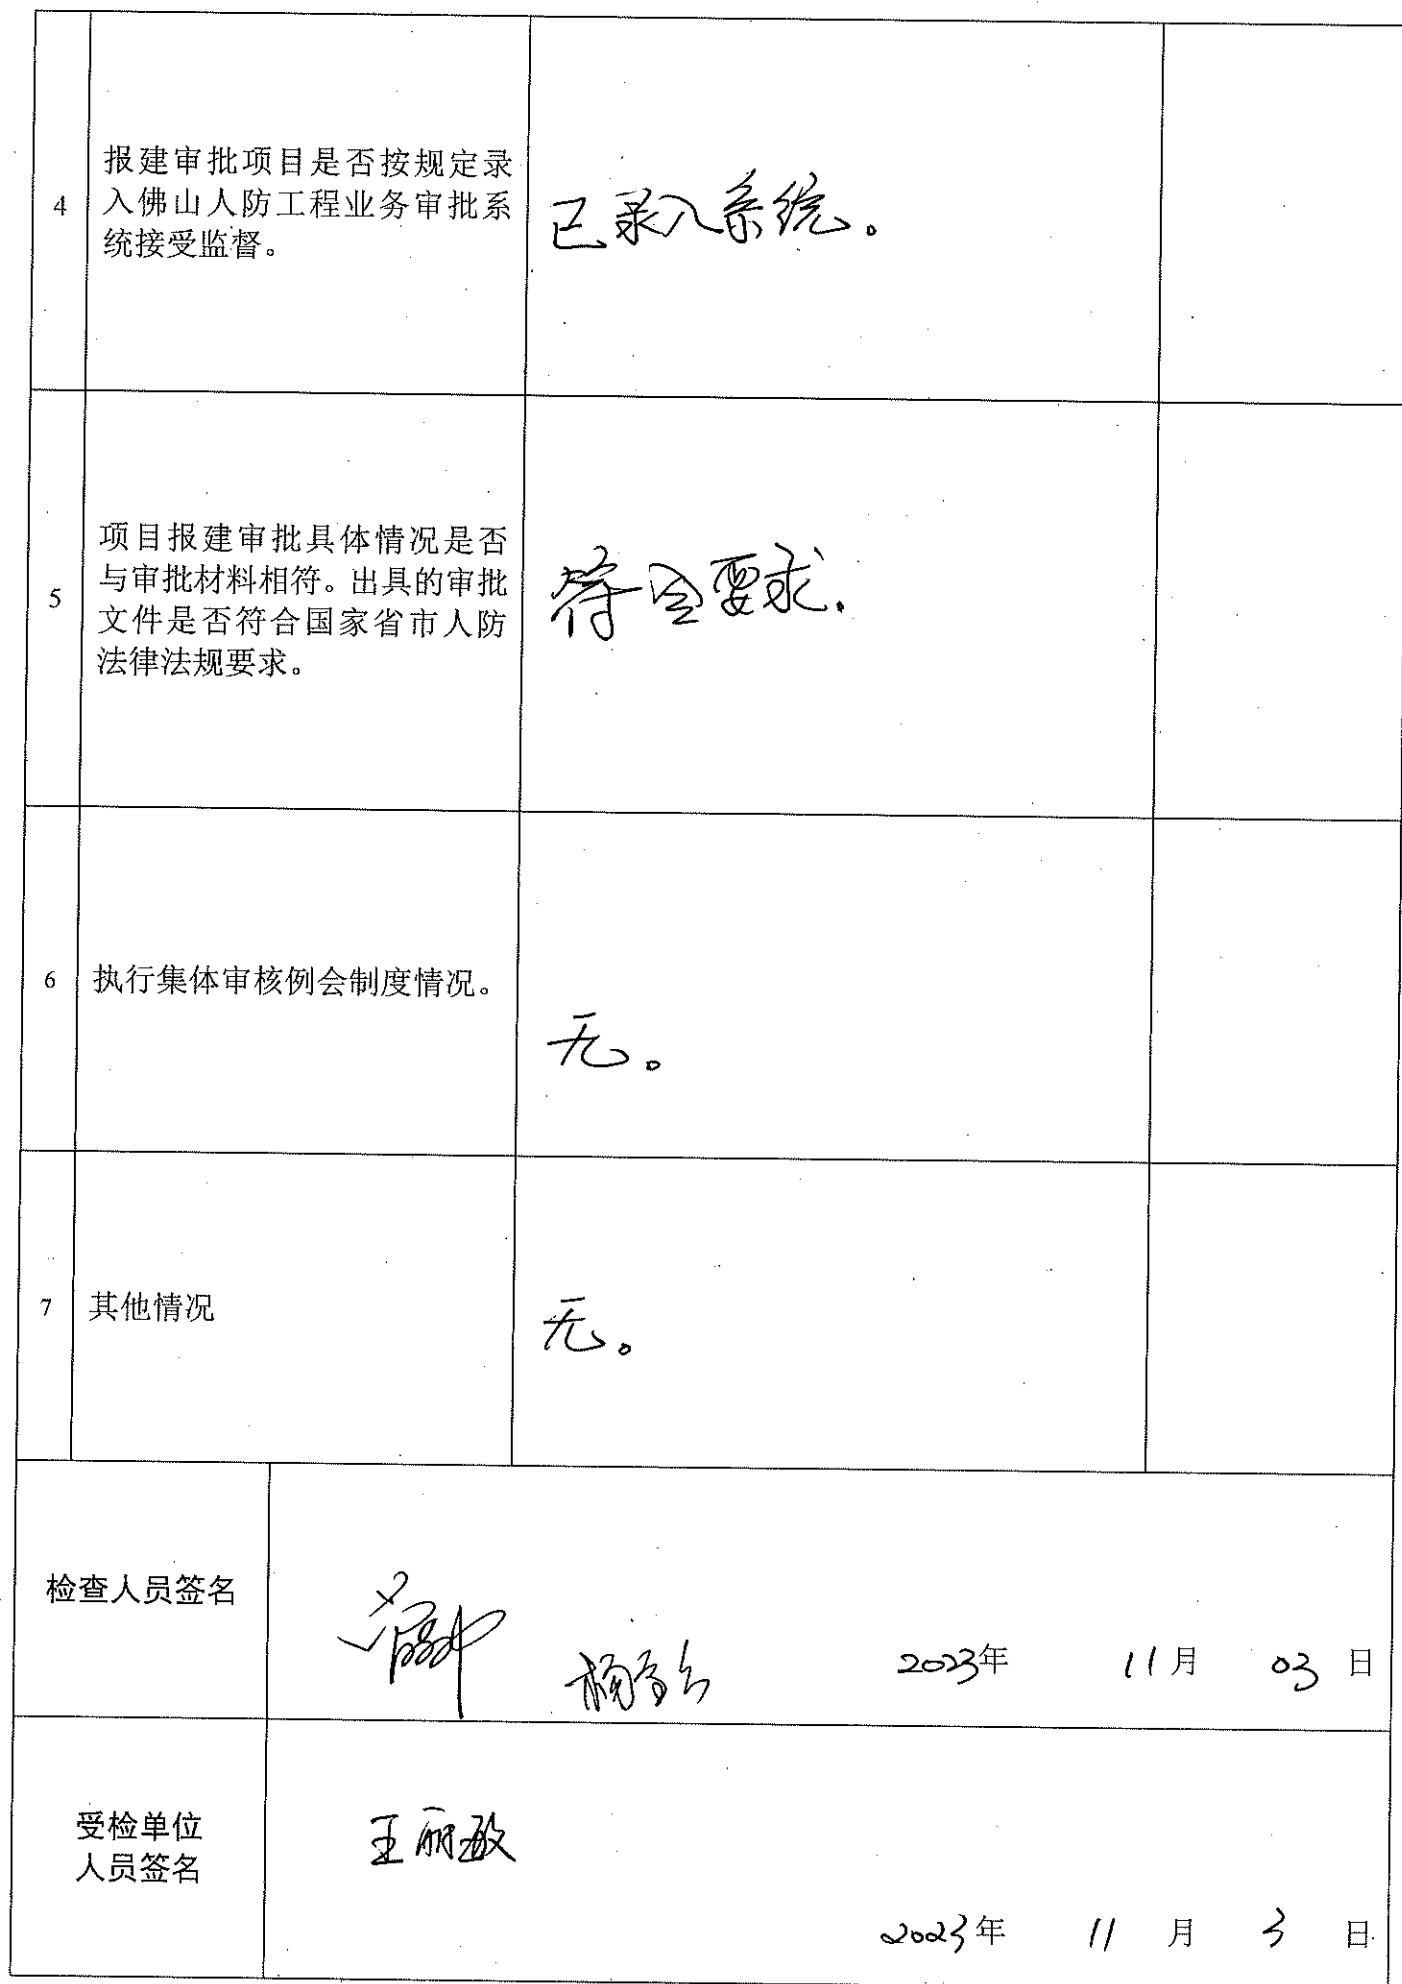 4
报建审批项目是否按规定录
入佛山人防工程业务审批系
统接受监督。
已录入系统。
5
项目报建审批具体情况是否
与审批材料相符。出具的审批
文件是否符合国家省市人防
法律法规要求。
符合要求.
6
执行集体审核例会制度情况。
无。
7
其他情况
无。
检查人员签名
2023年 11月 03日
受检单位
人员签名
王丽敏
2023年 11月 3日